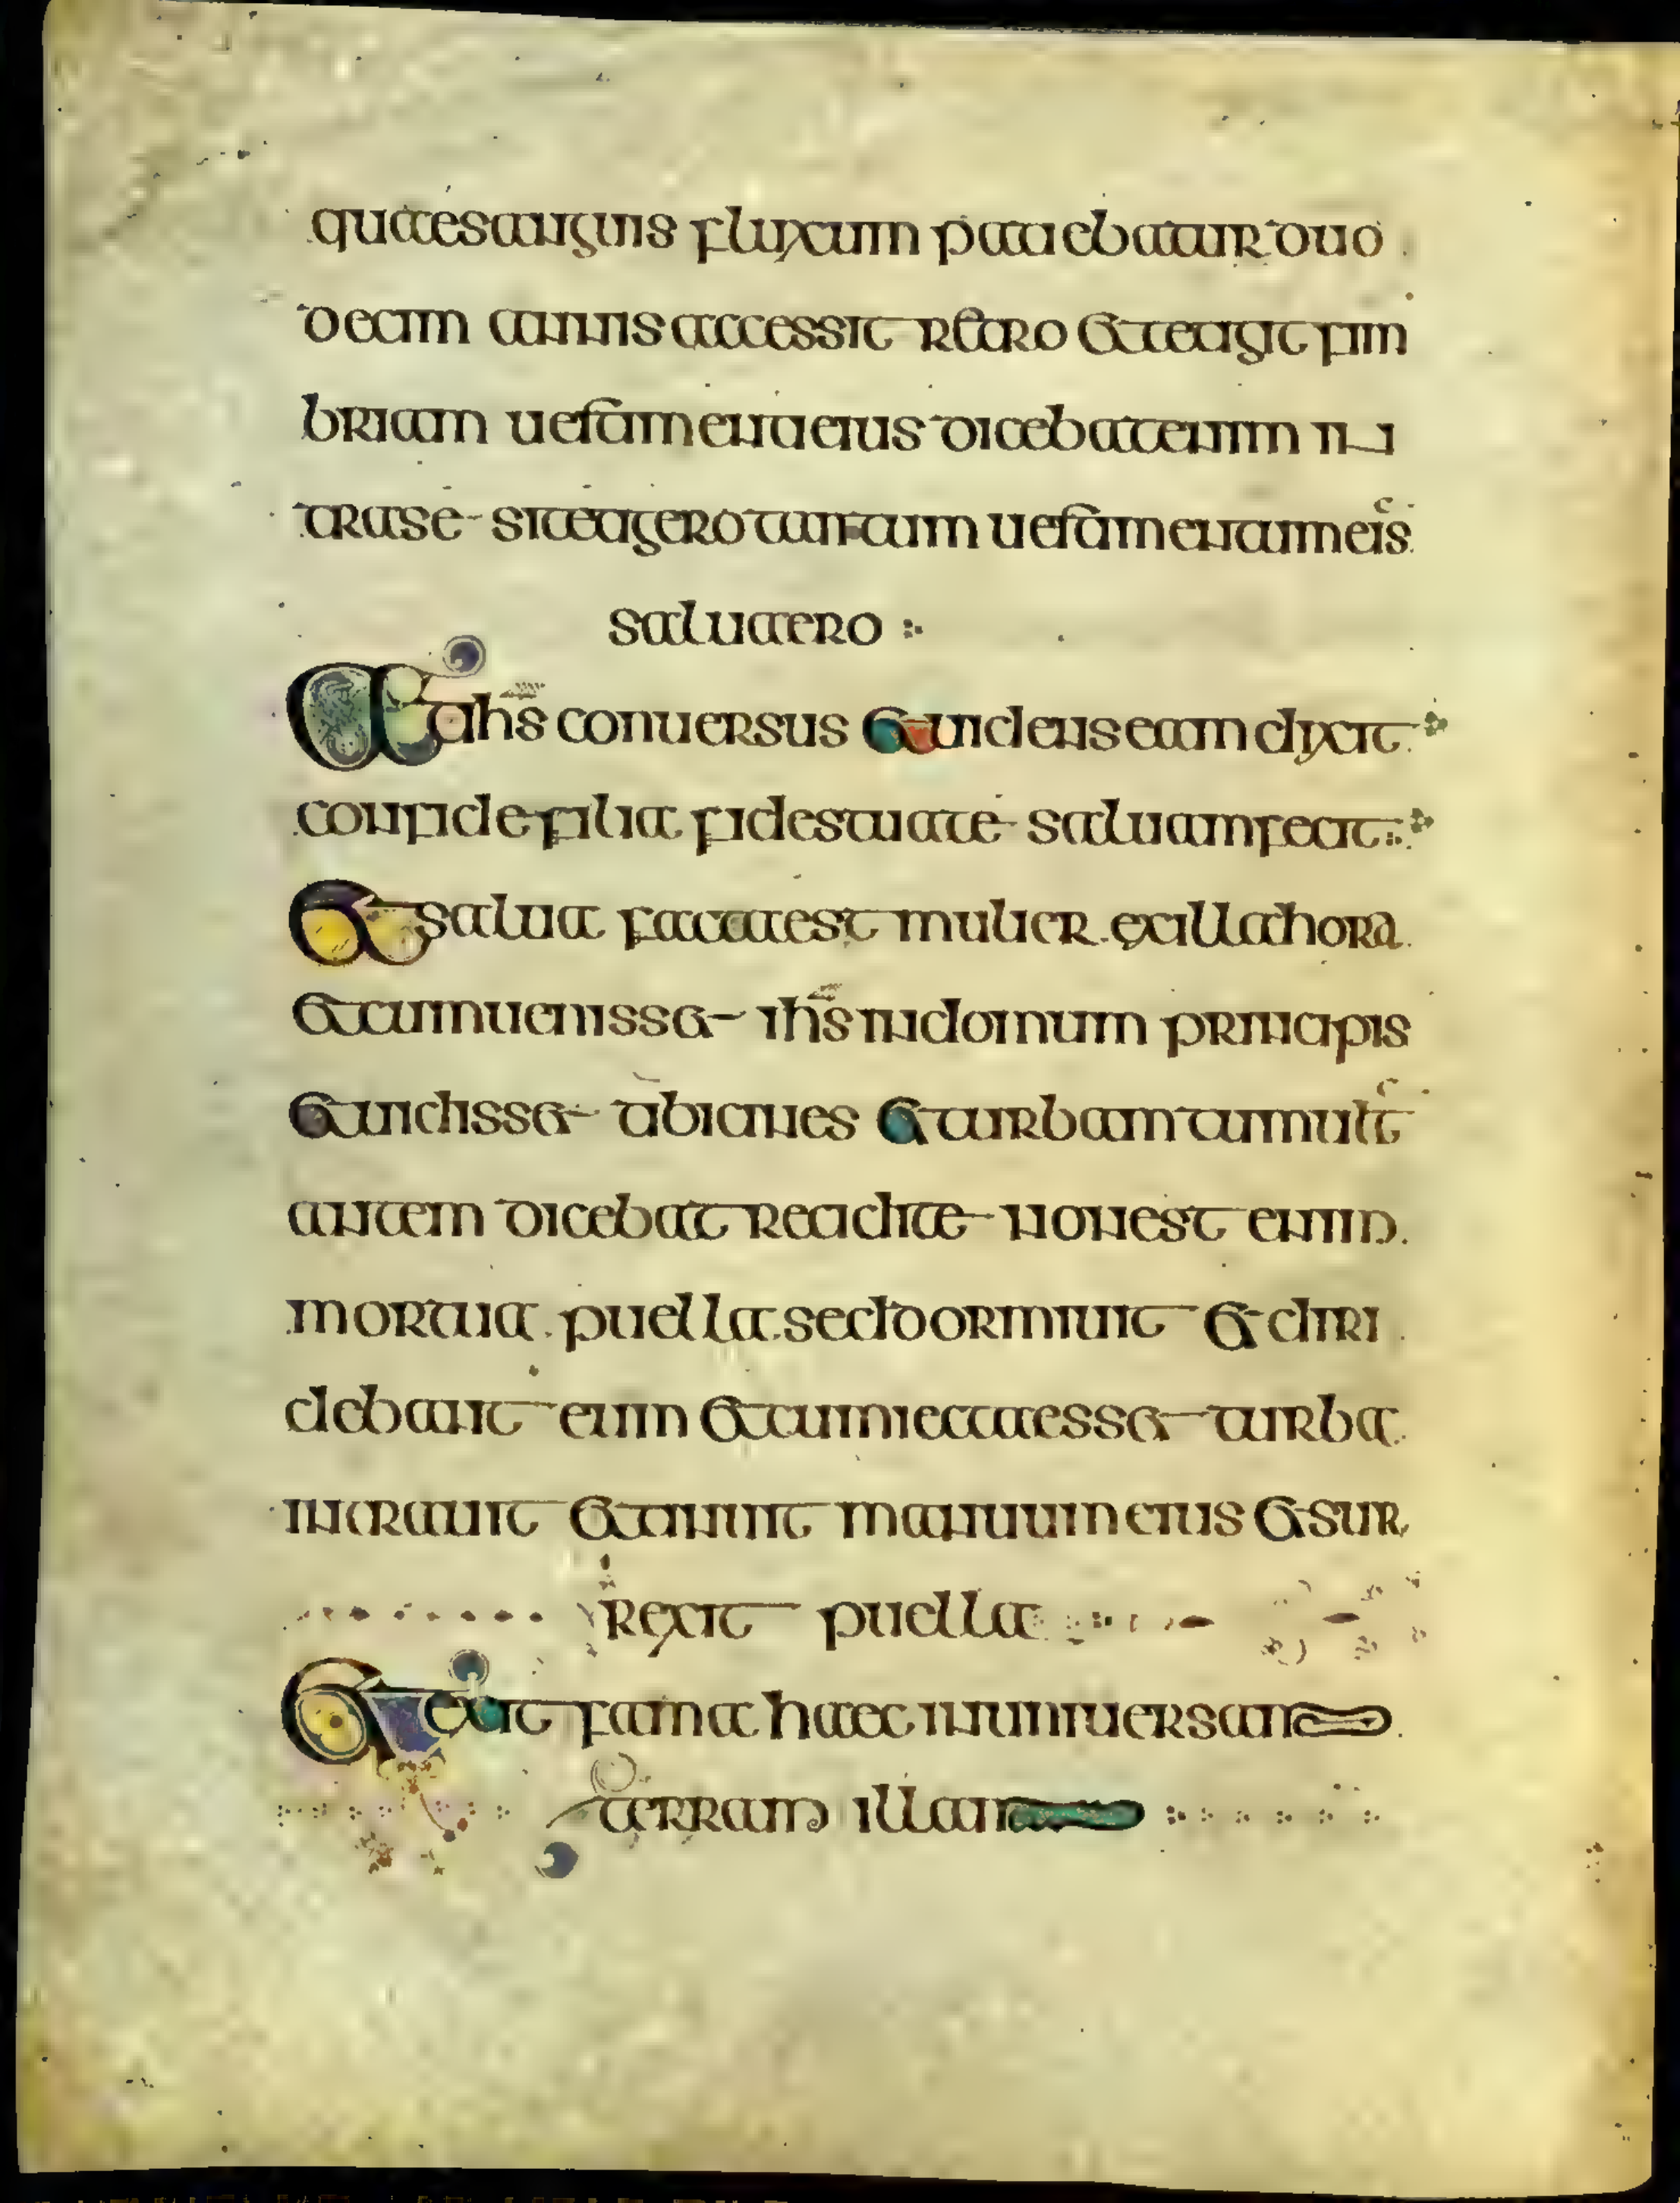 quae sanguinis fluxum patiebatur duo
decim annis accessit retro et tetigit fim
briam uestamenti eius dicebat enim in
tra se si tetigero tantum uestamentum eis
saluaero
At ihs conuersus et uidens eam dixit
confide filia fides tua te saluam fecit
Et salua facta est mulier ex illa hora
et cum uenisset ihs in domum principis
et uidisset tibicines et turbam tumult
antem dicebat recidite non est enim
mortua puella sed dormiuit et diri
debant eum et cum iecta esset turba
intrauit et tinuit manuum eius et sur
rexit puella
Et exiit fama haec in uniuersam
terram illam